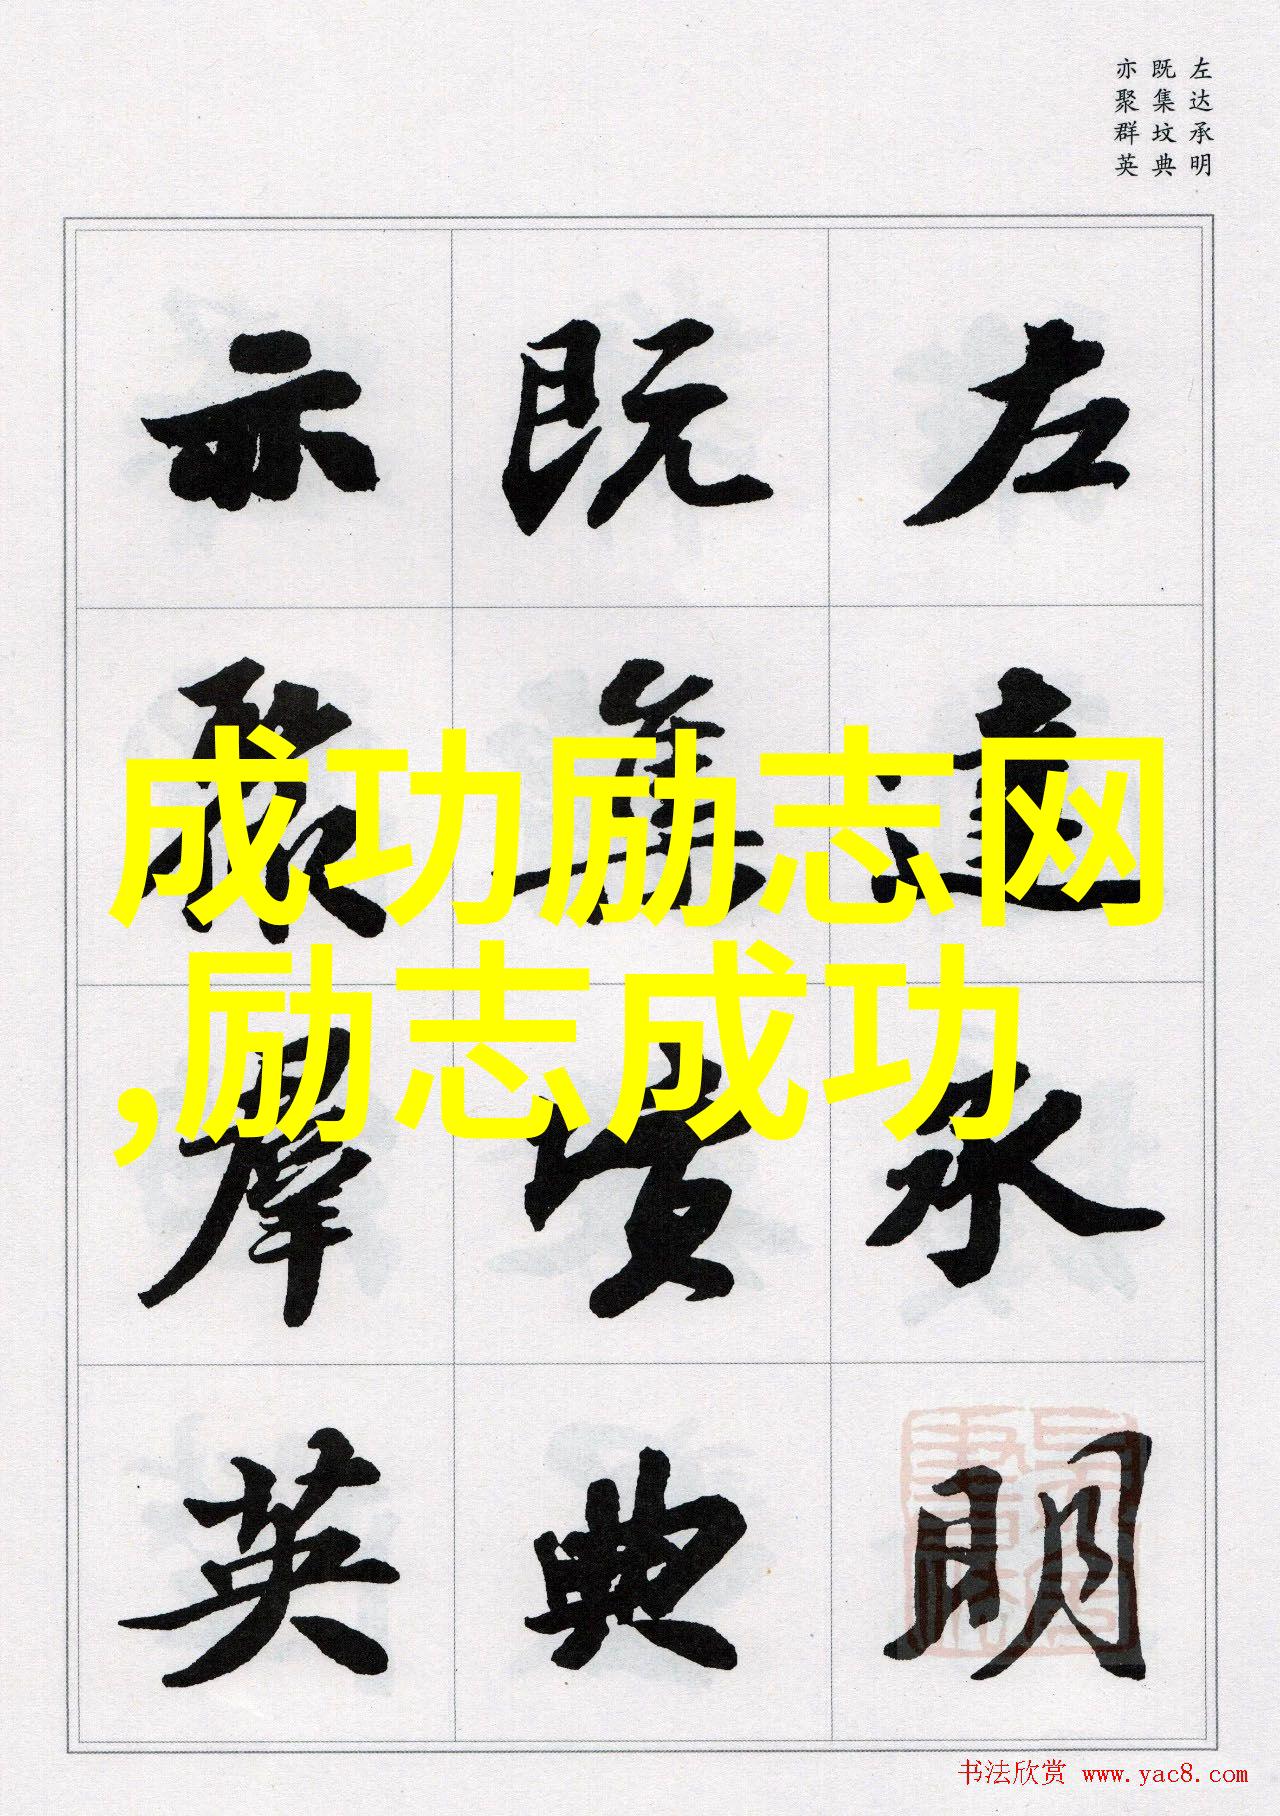 左达承明
既集坟典
亦聚群英
左達承明
既集墳典
亦聚羣英
成功励志网
,励志成功
书法欣赏 www.yac8.com